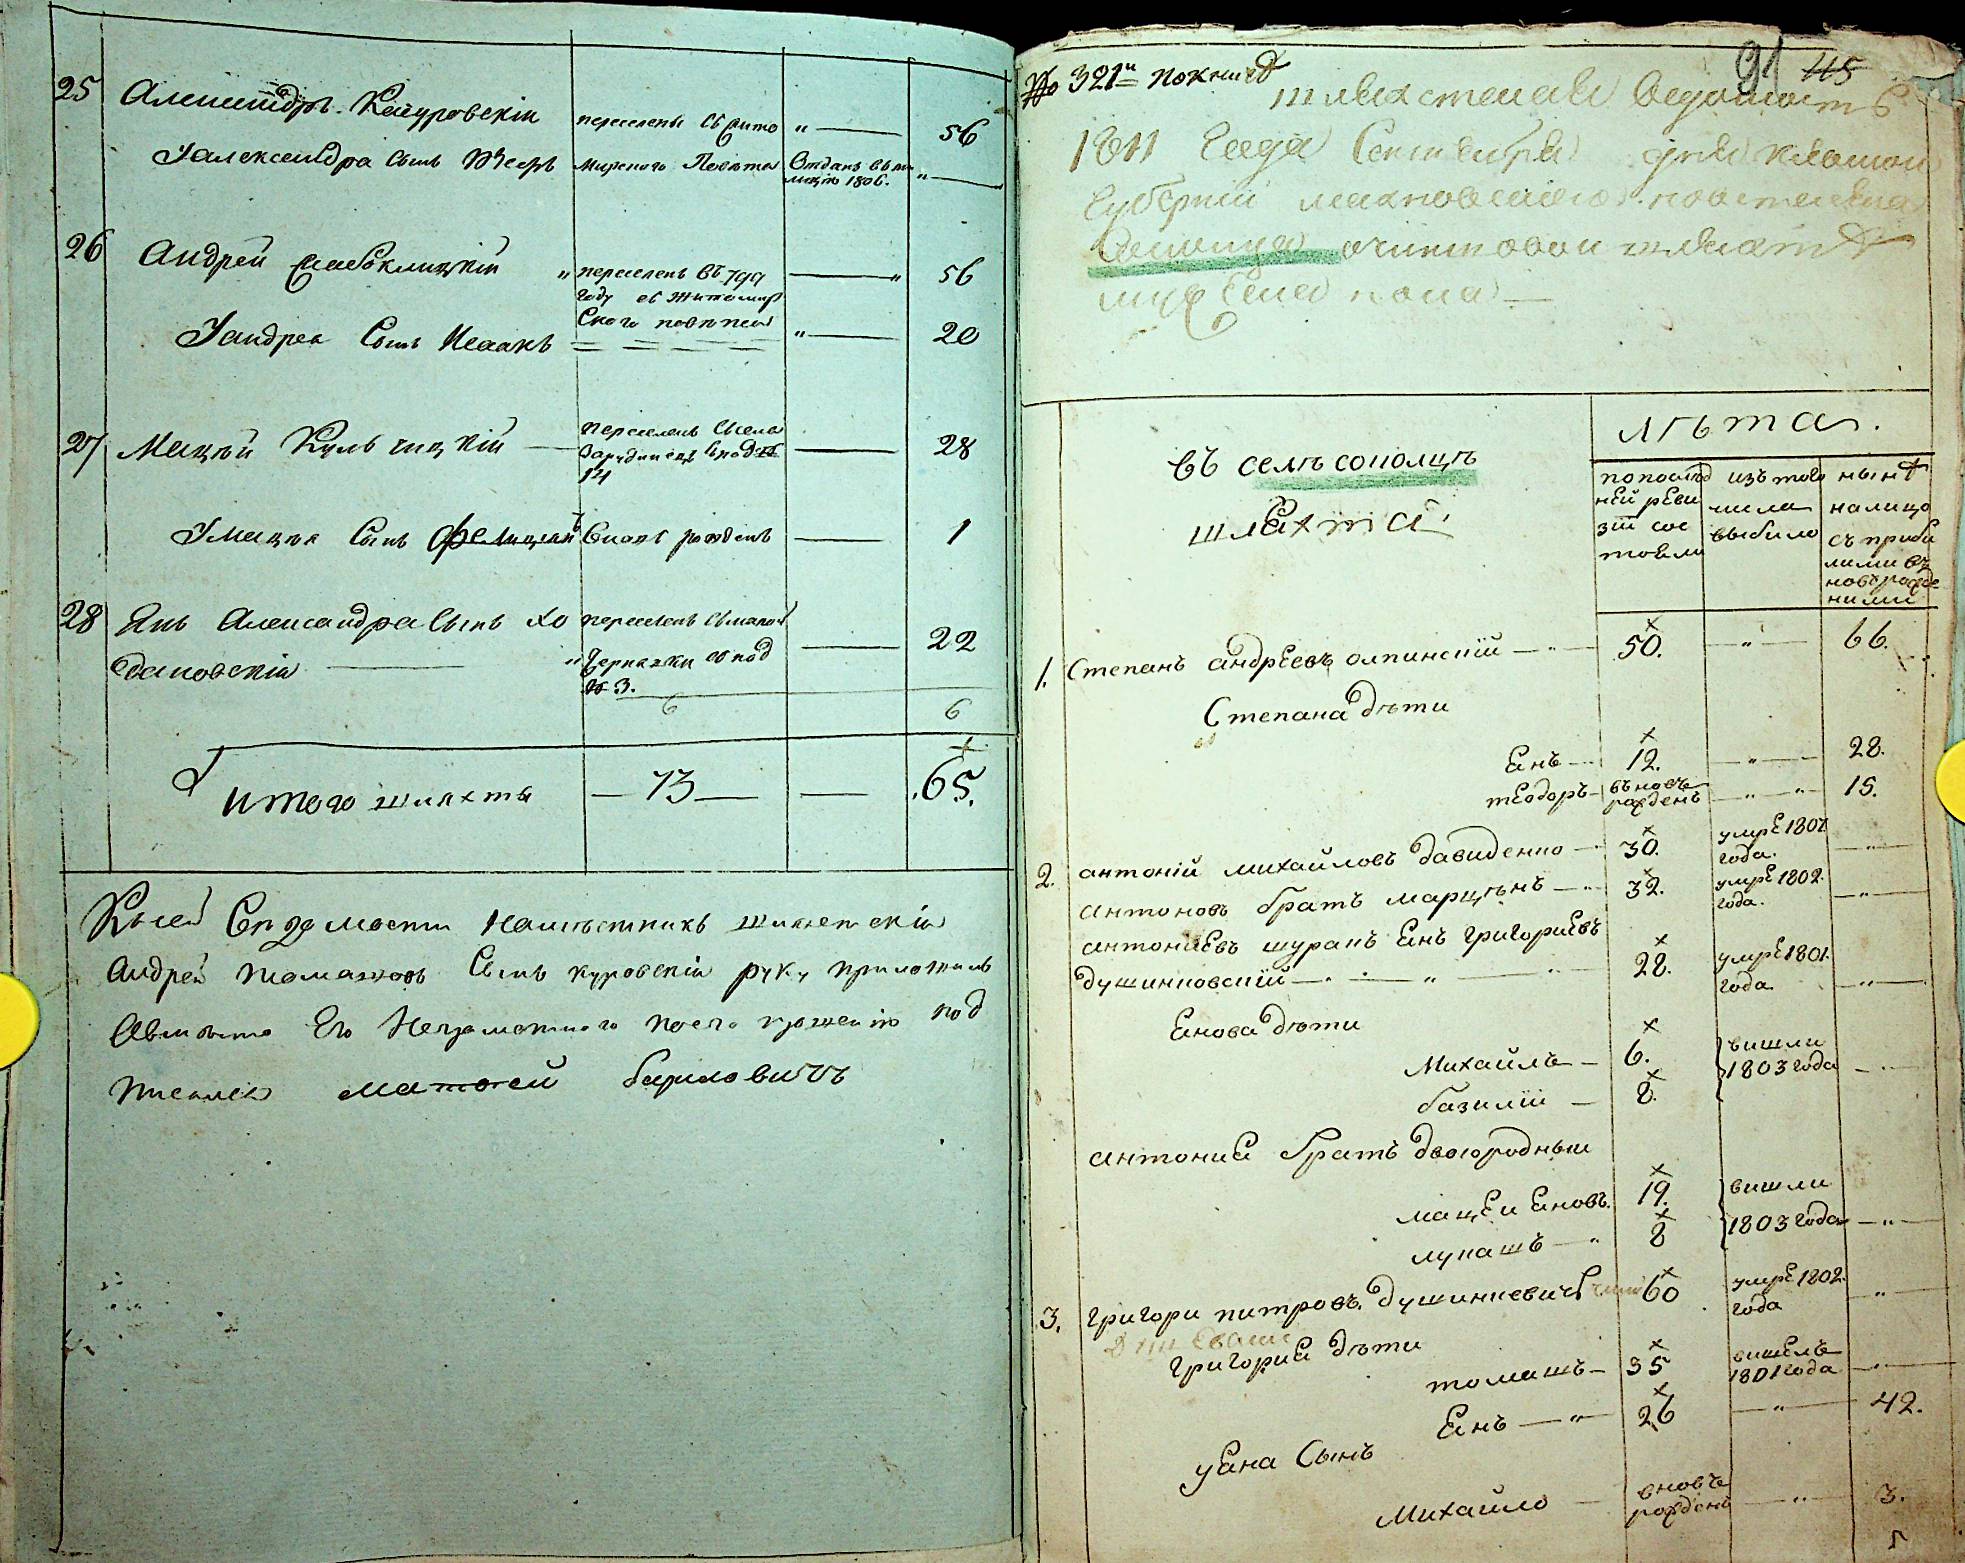 25 Александръ Кацуровскій переселены съ Жито " — 56
Уалександра сынъ Юсефъ мирского Повѣта Отданъ въ ми
лицію 1806. " —
26 Андрей Слабоклицкій " переселенъ въ 799 — " 56
году съ Житомир
ского повѣта
Уандрея Сынъ Исаакъ " — 20
27 Мацѣй Кульчицкій — переселенъ Съсела — 28
Зарудинецъ
14
Умацѣя Сынъ Фелиціан Вновь рожденъ — 1
28 Янъ Александра Сынъ Хо переселенъ Съмалой — 22
дановскій — " Чернявки съпод
№ 3.
6 6
Итого шляхты — 73 — — 65.
Късей Вѣдомости Намѣстникъ шляхетскій
Андрей Томашовъ Сынъ куровскій руку приложилъ
Авмѣсто Его Неграмотного поего прошенію под
писался Матѣей бариловичъ
№ 321й покнигѣ
91 115
шляхетская Ведомость
1811 Года Сентября дня кіевской
Губерніи махновского повета села
Соколца очиншовой шляхтѣ
въ селѣ соколцѣ
шляхта:
лѣта.
попослѣд
ней реви
зіи сос
тояли
изътого
числа
выбыло
нынѣ
налицо
съприбы
лыми въ
новърожде
ными
1. Степанъ андреевъ олпинскій — " — 50. — " — 66.
Степана дѣти
Янъ — 12. — " — 28.
теодоръ — въновъ
рожденъ — " — " 15.
2. антоній михайловъ давиденко — 30. умре 1807
года. — " —
антоновъ братъ марцѣнъ — " 32. умре 1802.
года. — " —
антониевъ шуранъ Янъ григориевъ
душинковскій — " — " — " — 28. умре 1801.
года. — " —
Янова дѣти
Михайлъ — 6. вишли
1803 года — " —
базилій — 8.
антония братъ двоюродный
мацеи Яновъ. 19. вишли
1803 года — " —
лукашъ — " 8
3. григори питровъ душинкевичъ 60 умре 1802.
года — " —
григория дѣти
томашъ — 35 вишелъ
1801 года — " —
Янъ — " — 26 — " — 42.
уяна Сынъ
Михайло — вновъ
рожденъ — " — 3.
5